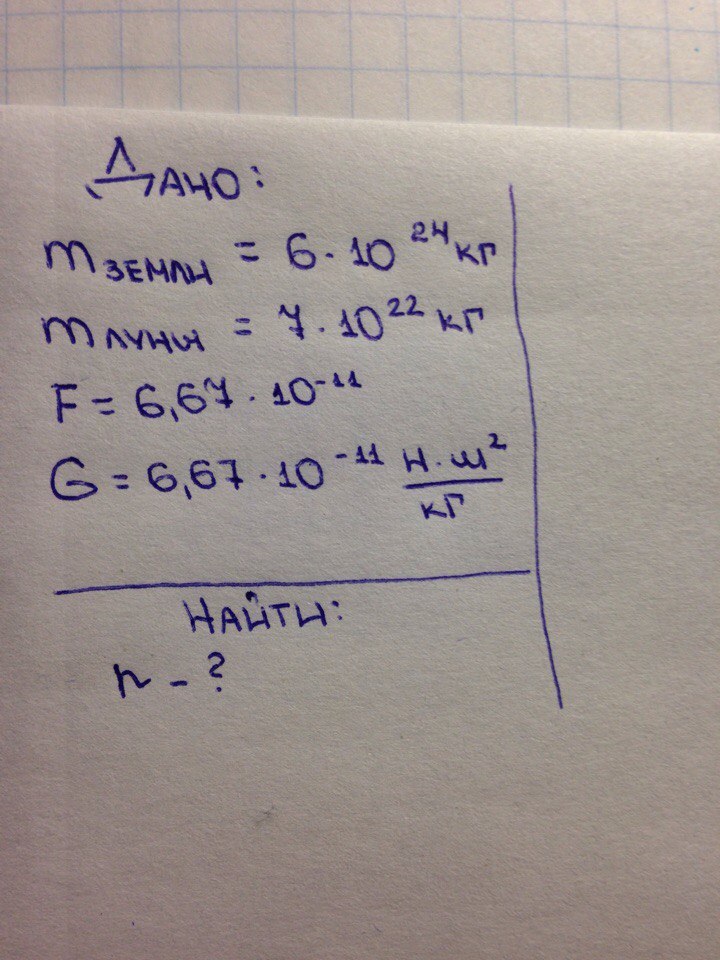 Дано:
m земли = 6 · 10²⁴ кг
m луны = 7 · 10²² кг
F = 6,67 · 10⁻¹¹
G = 6,67 · 10⁻¹¹ Н·м²/кг
Найти:
r - ?